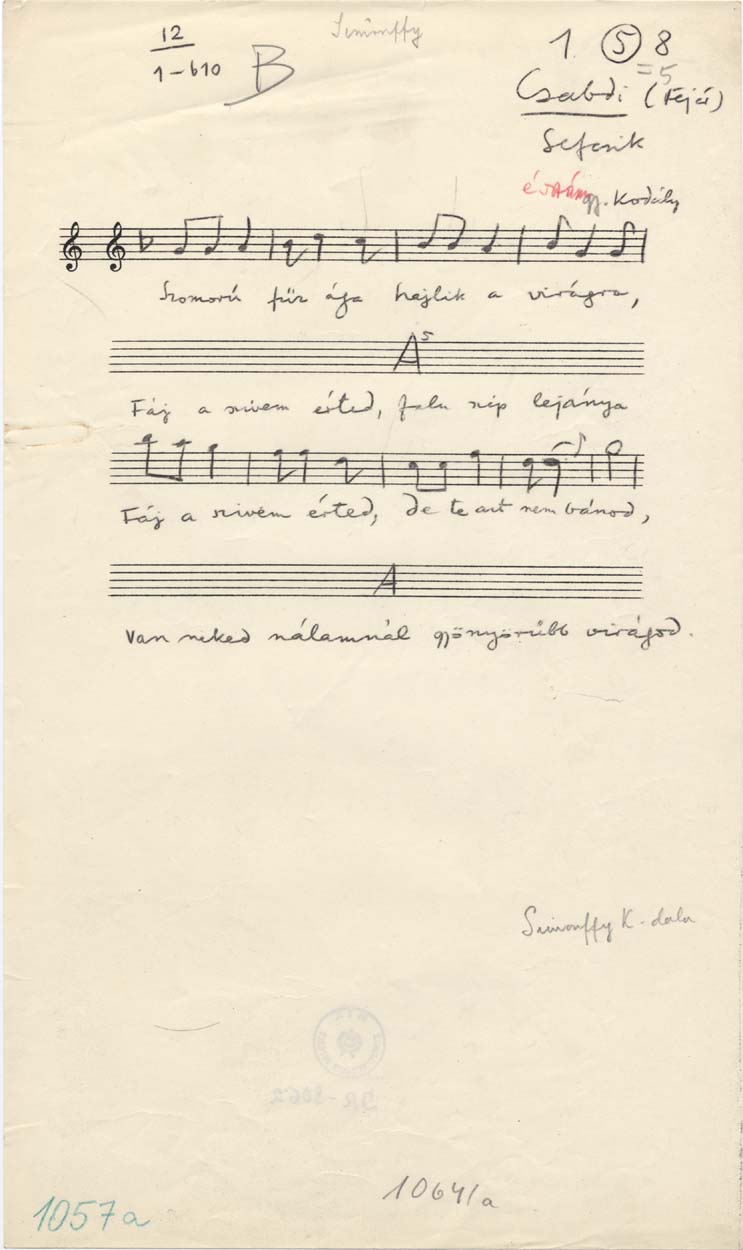 12
1-610
B
Simonffy
1 5 8
=5
Csabdi (Fejér)
Sefcsik
gy. Kodály
Szomorú fűz ága hajlik a virágra,
A5
Fáj a szivem érted, falu szép lejánya
Fáj a szivem érted, de te azt nem bánod,
A
Van neked nálamnál gyönyörűbb virágod.
Simonffy K. dala
1064/a
1057a